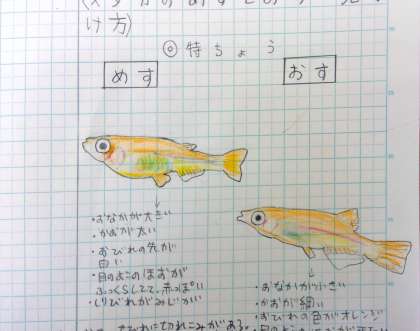 け方)
◎特ちょう
めす
おす
・おなかが大きい
・かおが太い
・おびれの先が
白い
・目のよこのほおが
ふっくらしてて、赤っぽい
・しりびれがみじかい
・おなかが小さい
・かおが細い
・おびれの色がオレンジ
せびれに切れこみがある。